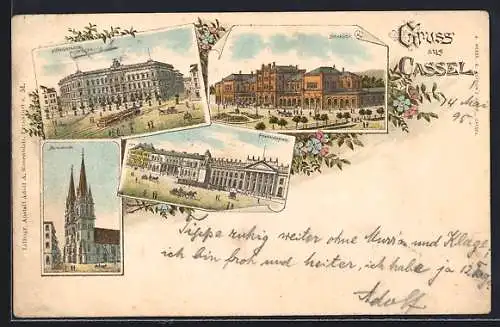 Gruss
aus
CASSEL.
Bahnhof.
Friedrichsplatz
4 Mai
95
Tippe ruhig weiter ohne Murr'n und Klage,
ich bin froh und heiter, ich habe ja 12
Adolf
Lithogr. Anstalt Adolf A. Rosenblatt, Frankfurt a. M.